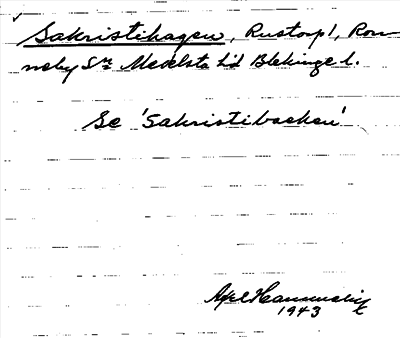 Sakristihagen, Rustorp 1, Ron-
neby Sn Medelsta hd Blekinge l.
Se 'Sakristibacken'
Axel
1943